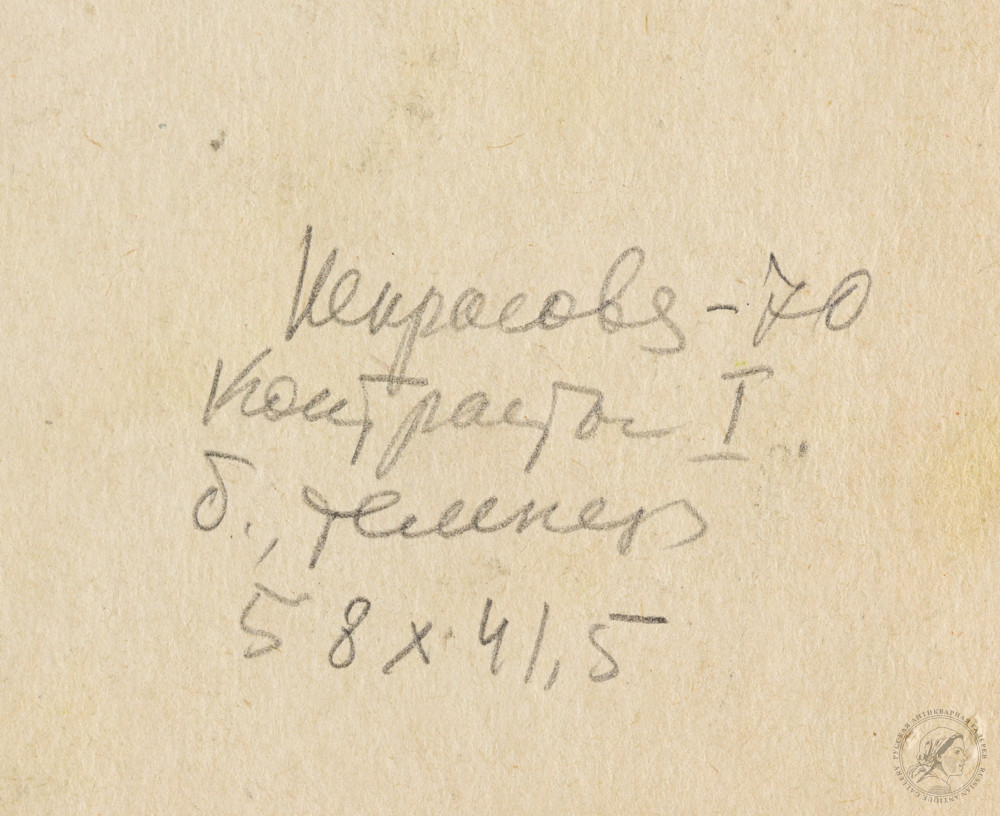 Некрасова - 70
Контрасты I.
б., темпера
58 х 41,5
РУССКАЯ АНТИКВАРНАЯ ГАЛЕРЕЯ
RUSSIAN ANTIQUE GALLERY